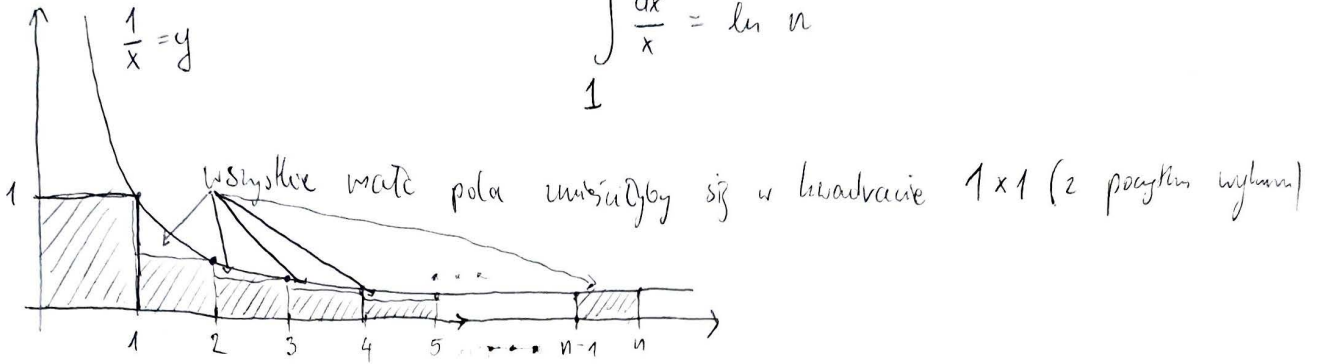 1/x = y
∫ dx/x = ln n
1
1 wszystkie małe pola zmieściłyby się w kwadracie 1x1 (z początku wykresu)
1 2 3 4 5 ....... n-1 n